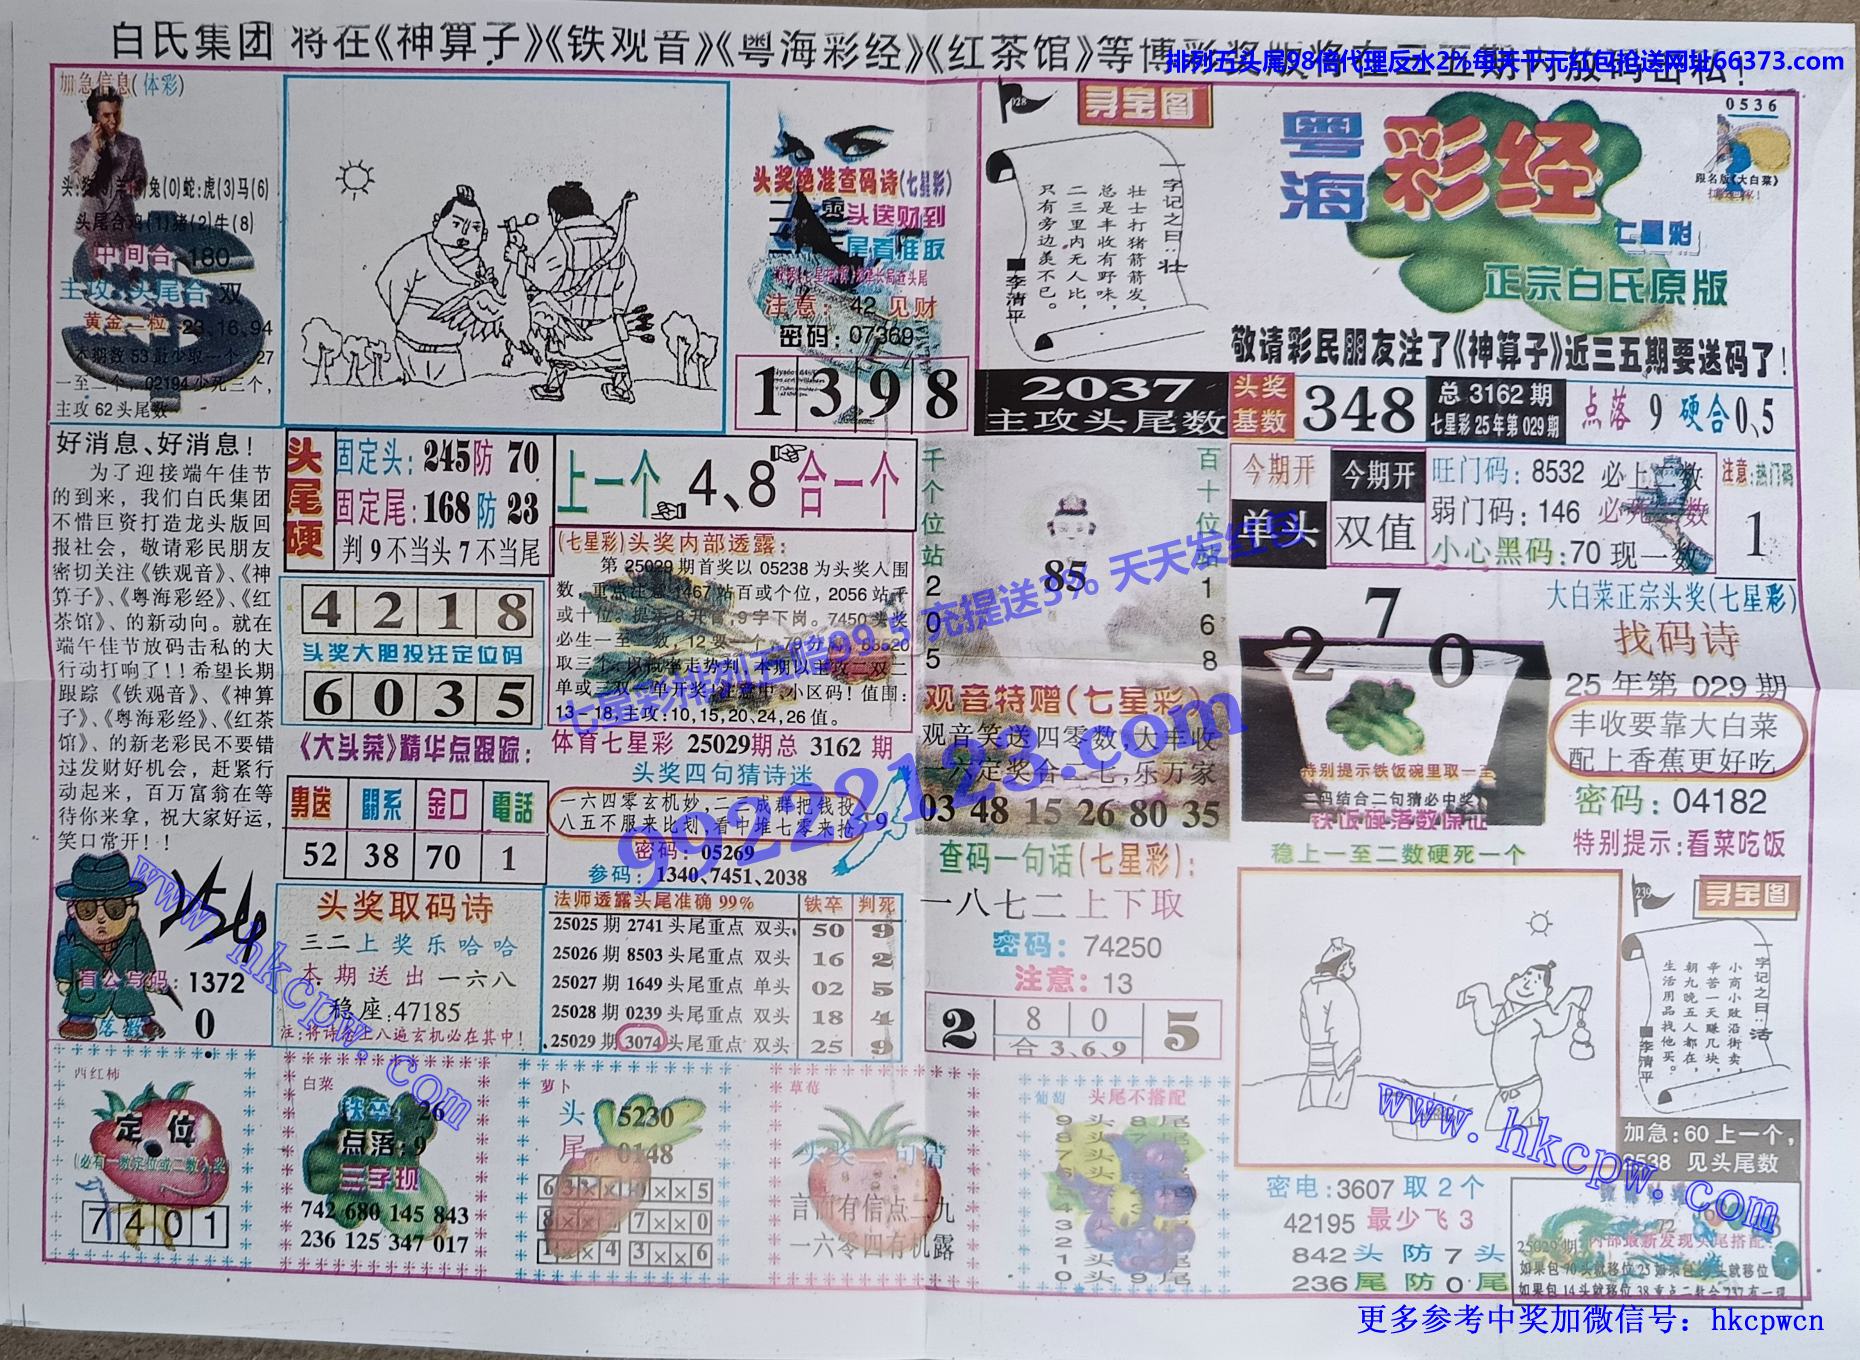 白氏集团 将在《神算子》《铁观音》《粤海彩经》《红茶馆》等博彩
排列五头尾98倍代理反水2%每天千元红包抢送网址66373.com
加急信息(体彩)
兔(0)蛇:虎(3)马(6)
头尾合鸡(1)猪(2)牛(8)
中间合 180
主攻:头尾合 双
黄金二粒 23,16,94
本期数 53 最少取一个, 27
一至二个, 02194 少死三个,
主攻 62 头尾数
头奖绝准查码诗(七星彩)
头送财到
尾看准取
注意: 42 见财
密码: 07369
1 3 9 8
028
寻宝图
一字记之曰:壮
壮士打猪箭箭发,
总是丰收有野味,
二三里内无人比,
只有旁边羡不已。
■李清平
2037
主攻头尾数
0536
粤海彩经
七星彩
正宗白氏原版
跟名版《大白菜》
敬请彩民朋友注了《神算子》近三五期要送码了!
头奖基数
348
总 3162 期
七星彩 25 年第 029 期
点落 9 硬合0、5
好消息、好消息!
为了迎接端午佳节
的到来，我们白氏集团
不惜巨资打造龙头版回
报社会，敬请彩民朋友
密切关注《铁观音》、《神
算子》、《粤海彩经》、《红
茶馆》、的新动向。就在
端午佳节放码击私的大
行动打响了!!希望长期
跟踪《铁观音》、《神算
子》、《粤海彩经》、《红茶
馆》、的新老彩民不要错
过发财好机会，赶紧行
动起来，百万富翁在等
待你来拿，祝大家好运，
笑口常开!!
头尾硬
固定头: 245 防 70
固定尾: 168 防 23
判 9 不当头 7 不当尾
上一个 4、8 合一个
4 2 1 8
头奖大胆投注定位码
6 0 3 5
(七星彩)头奖内部透露:
第 25029 期首奖以 05238 为头奖入围
数，重点注意 1467 站百或个位，2056 站千
或十位。提示 8 开官,9 字下岗。7450 头奖
必生一至 数，12 要一个，79 分 83520
取三个,以概率走势判,本期以主攻二双二
单或三双一单开奖!注意中、小区码!值围:
13—18,主攻:10,15,20,24,26 值。
千个位站2055
百十位站168
85
今期开
单头
今期开
双值
旺门码: 8532 必上二数
弱门码: 146
小心黑码: 70 现一数
注意:热门码
1
《大头菜》精华点跟踪:
勇送 關系 金口 電話
52 38 70 1
体育七星彩 25029期总 3162 期
头奖四句猜诗迷
一六四零玄机妙,二三成群把钱投
八五不服来比划,看中堆七零来抢
9
密码: 05269
参码: 1340、7451、2038
观音特赠(七星彩)
观音笑送四零数,大丰收
一六定奖合二七,乐万家
03 48 15 26 80 35
2 7 0
特别提示铁饭碗里取一至
二码结合二句猜必中奖
铁饭碗落数保证
稳上一至二数硬死一个
大白菜正宗头奖(七星彩)
找码诗
25 年第 029 期
丰收要靠大白菜
配上香蕉更好吃
密码: 04182
特别提示:看菜吃饭
254
盲公写码: 1372
0
头奖取码诗
三二上奖乐哈哈
本期送出一六八
稳座:47185
法师透露头尾准确 99% 铁卒 判死
25025 期 2741 头尾重点 双头 50 9
25026 期 8503 头尾重点 双头 16 2
25027 期 1649 头尾重点 单头 02 5
25028 期 0239 头尾重点 双头 18 4
25029 期 3074 头尾重点 双头 25 9
查码一句话(七星彩):
一八七二上下取
密码: 74250
注意: 13
2 8 0 5
合 3、6、9
239
寻宝图
一字记之曰:活
小商小败沿街卖,
辛苦一天赚几块,
朝九晚五人都在,
生活用品找他买。
■李清平
加急: 60 上一个,
见头尾数
西红柿
定位
(必有一数定位或二数入奖)
7 4 0 1
白菜
铁卒: 26
点落: 9
三字现
742 680 145 843
236 125 347 017
萝卜
头 5230
尾 0148
草莓
言而有信点二九
一六零四有机露
葡萄
头尾不搭配
密电: 3607 取 2 个
42195 最少飞 3
842 头 防 7 头
236 尾 防 0 尾
25029期: 内部最新发现头尾搭配:
七星彩排列五赔99.5 充提送3% 天天发红包
99222123.com
www.hkcpw.com
www.hkcpw.com
更多参考中奖加微信号: hkcpwcn